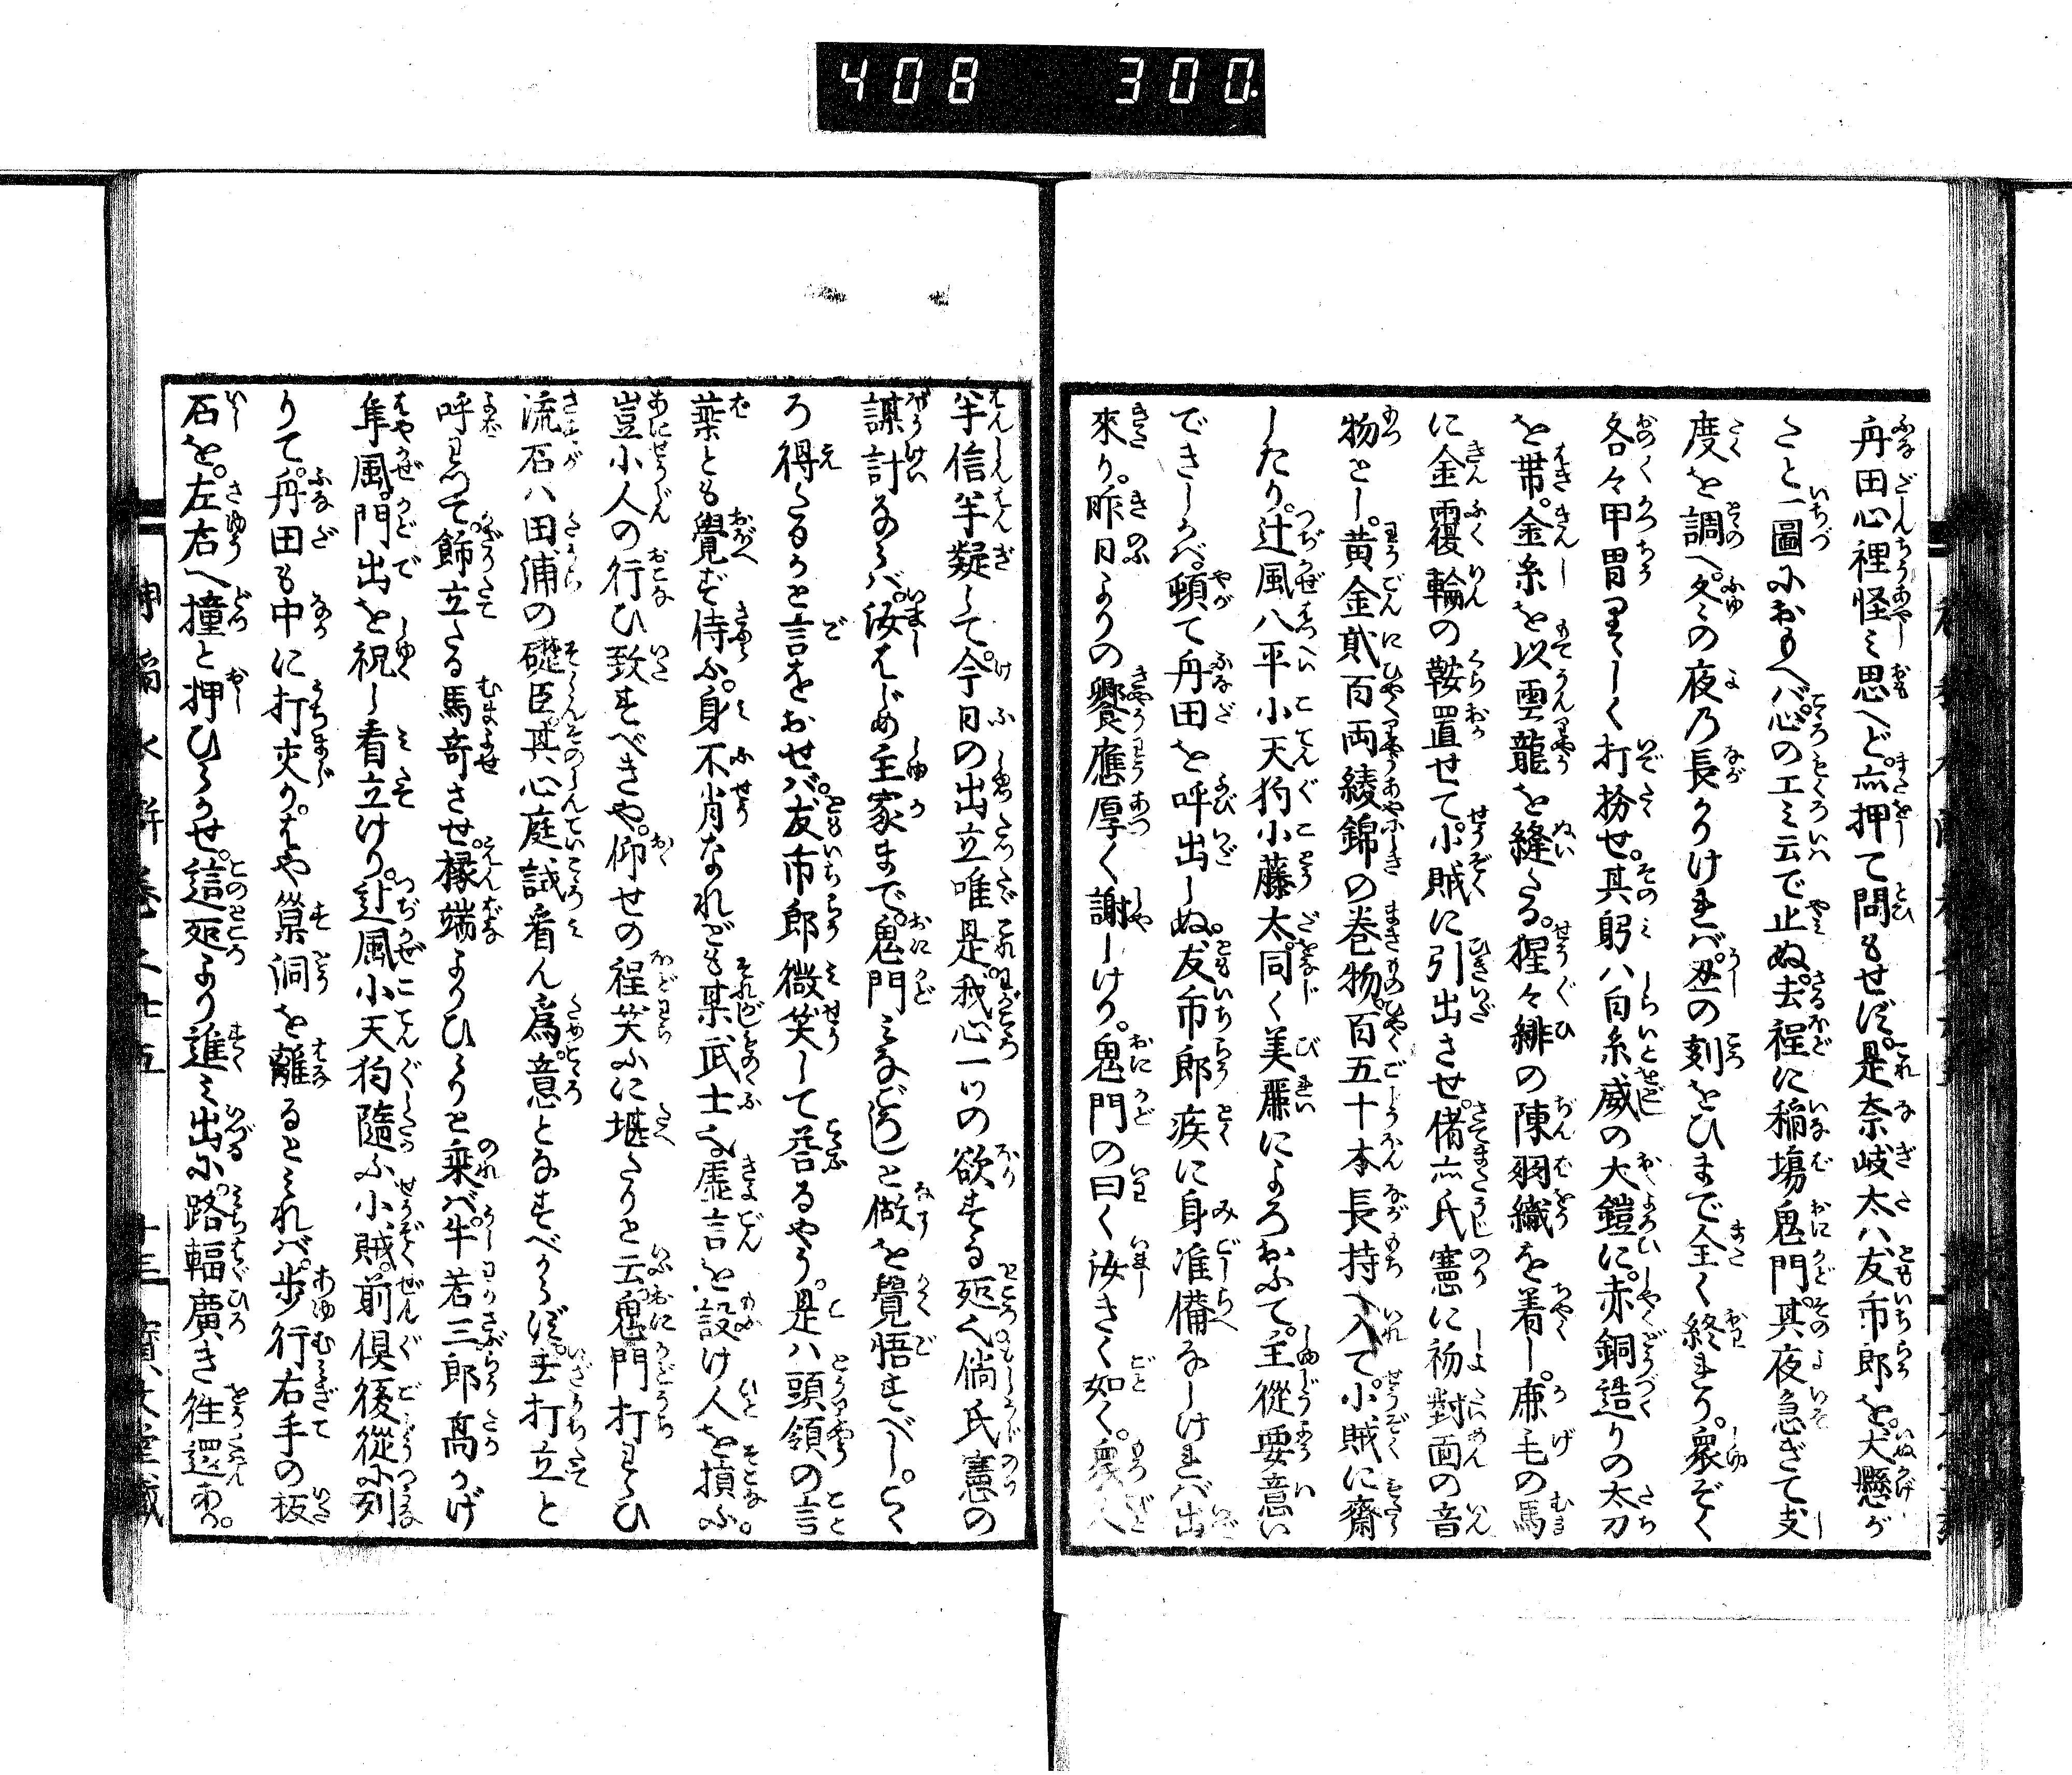 408 300
舟田心裡怪ミ思へど亦押て問もせず。是奈岐太ハ友市郎を犬懸が
さと一圖におもへバ心の工ミ云で止ぬ。去程に稲塲鬼門其夜急ぎて支
度を調へ冬の夜乃長かりけれバ丑の刻をひまで全く終れり。衆ぞく
各々甲冑りゝしく打扮せ。其躬ハ白糸威の大鎧に。赤銅造りの太刀
を帯。金糸を以雲龍を縫たる。猩々緋の陳羽織を着し。鹿毛の馬
に金覆輪の鞍置せて。小賊に引出させ。偖亦氏憲に初對面の音
物とし。黄金貳百両綾錦の巻物。百五十本長持へ入て。小賊に齋
したり。辻風八平小天狗小藤太。同く美麗によろおふて。主從要意い
できしかバ。頓て舟田を呼出しぬ。友市郎疾に身准備なしけれバ出
來り。昨日よりの饗應厚く謝しけり。鬼門の曰く汝きく如く。衆人
半信半疑して。今日の出立唯是我心一ツの欲する処也。倘氏憲の
謀計ならバ。汝をはじめ主家まで。鬼門ミなごろしと做を覺悟すべし。よく
ろ得たるかと言をおせバ。友市郎微笑して荅るやう。是ハ頭領の言
葉とも覺ず侍ふ。身不肖なれども某武士也。虚言を設け人を損ふ。
豈小人の行ひ致すべきや。仰せの程笑ふに堪たりと云。鬼門打わらひ
流石ハ田浦の礎臣。其心庭試看ん爲。意となすべからず。率打立と
呼わつて。飾立たる馬竒させ。椽端よりひらりと乗バ。牛若三郎髙かげ
隼風。門出を祝し看立けり。辻風小天狗隨ふ小賊。前倶後從に列
りて。舟田も中に打夾り。はや巣洞を離るとミれバ。歩行右手の板
石を。左右へ撞と押ひらかせ。這処より進ミ出に。路輻廣き徃還あり。